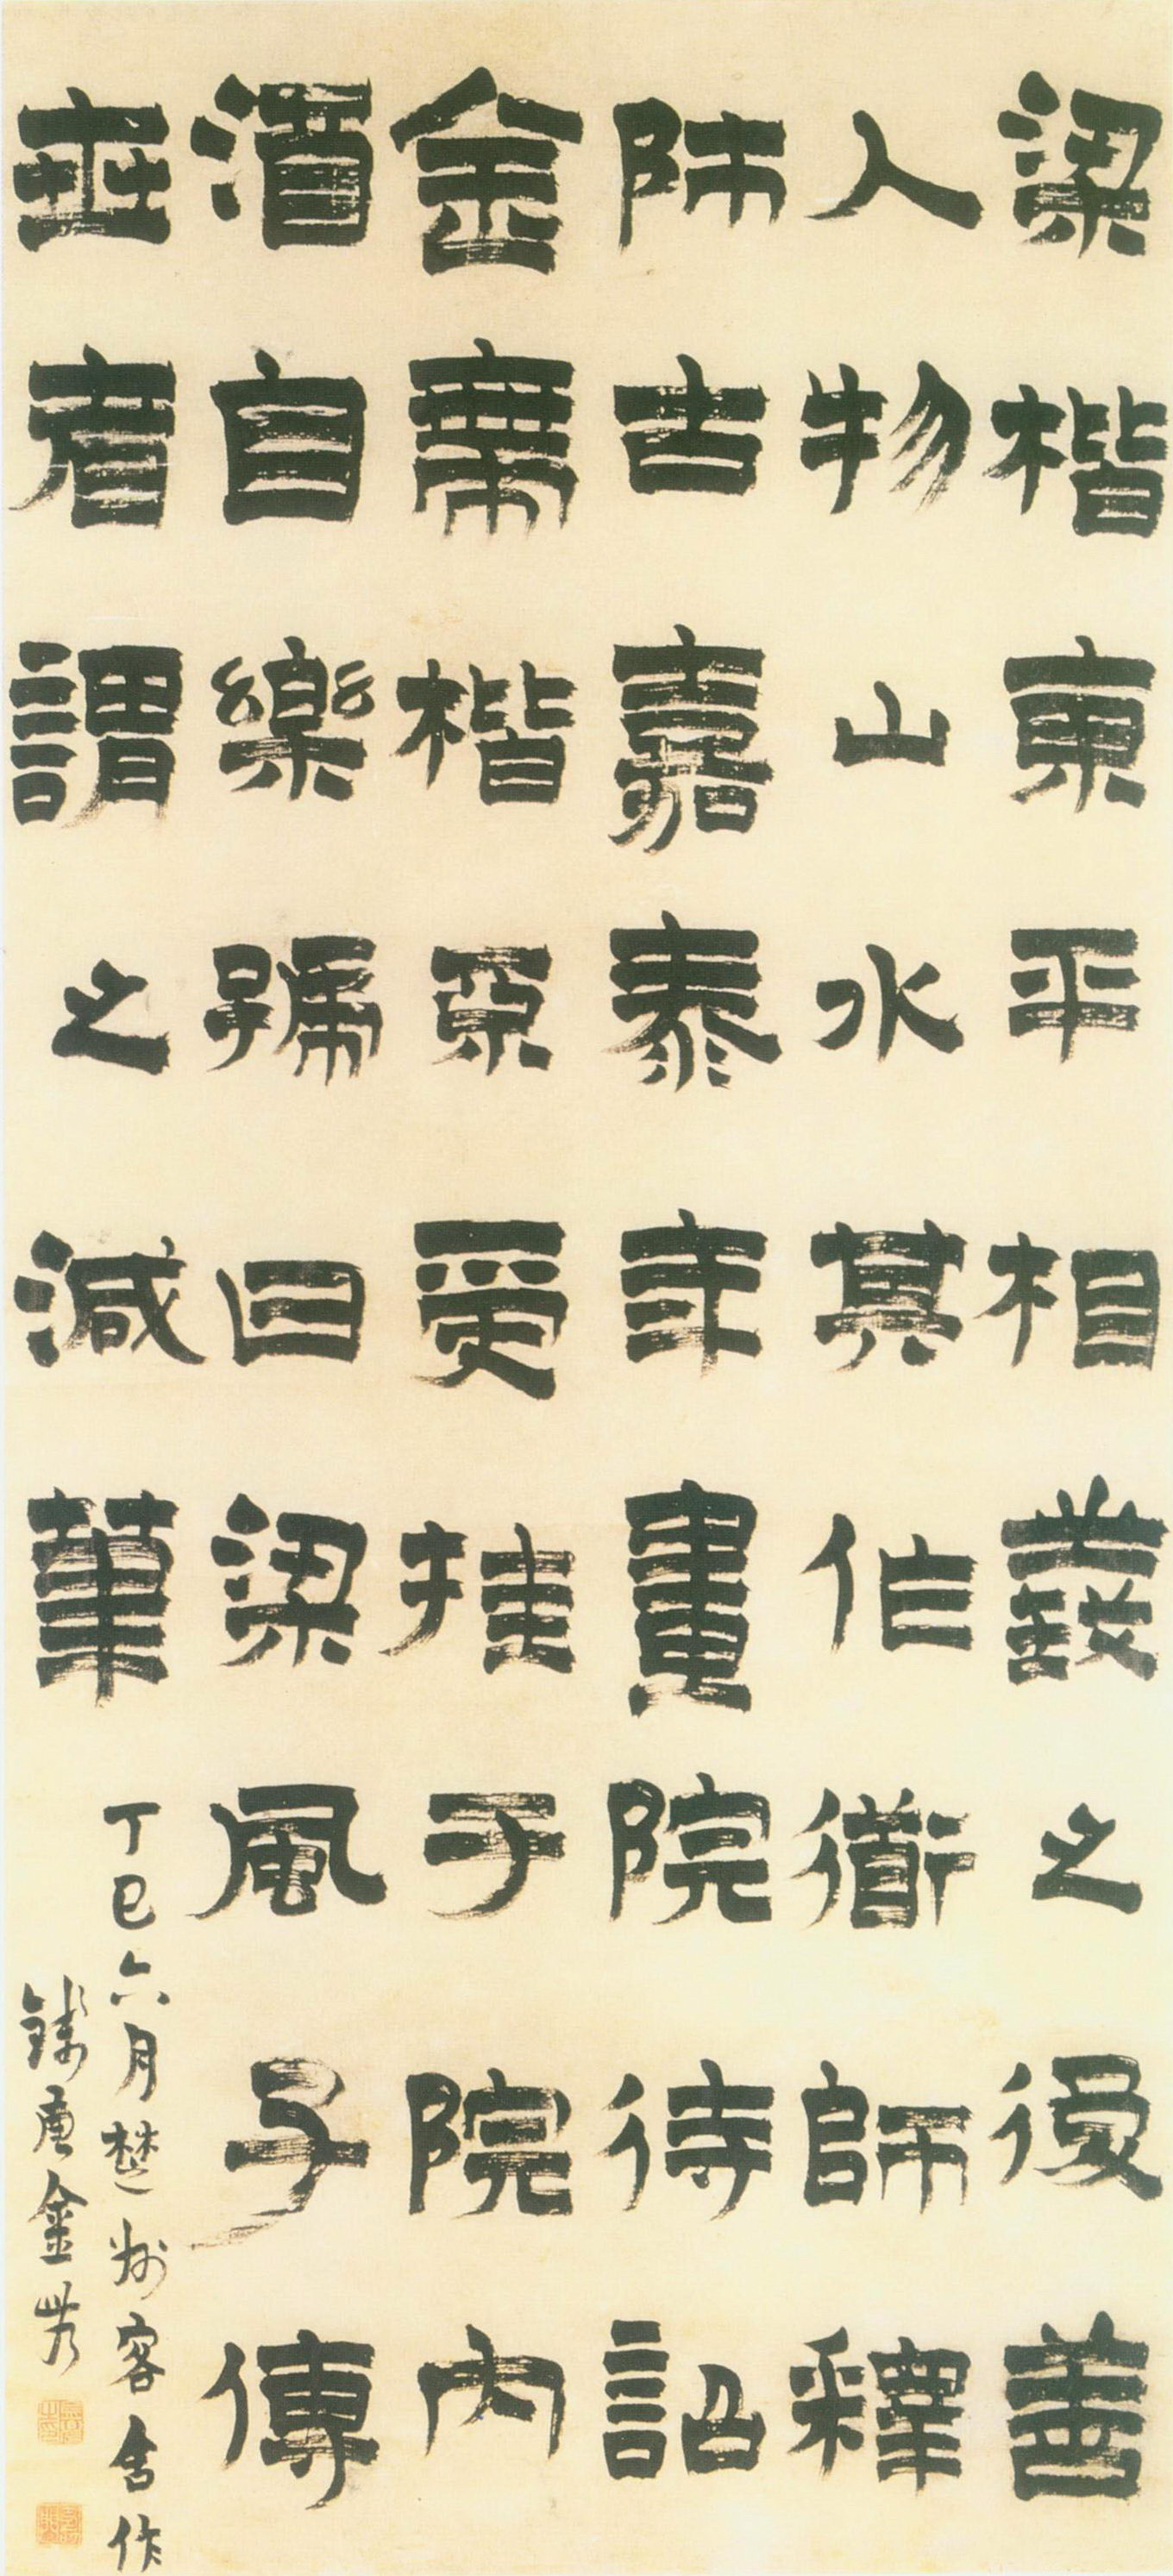 梁楷東平相之後善
人物山水其作衜師釋
師古嘉泰年畫院待詔
金帶楷受挂于院内
酒自樂號曰梁風子傳
世者謂之減筆
丁巳六月楚州客舍作
錢唐金農